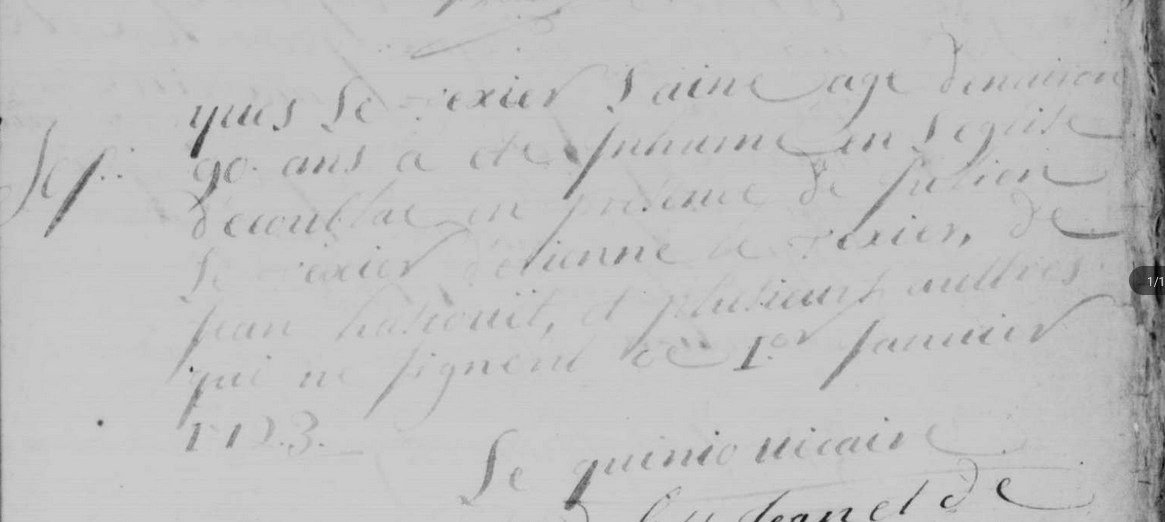 ques Le Texier L'ainé agé denviron
Sep. 90. ans a eté inhumé en L'eglise
d'escoublac en presence de julien
Le Texier d'etienne le Texier, de
jean hasrouit, et plusieurs aultres
qui ne signent ce 1er janvier
1723.
Le quinio vicaire